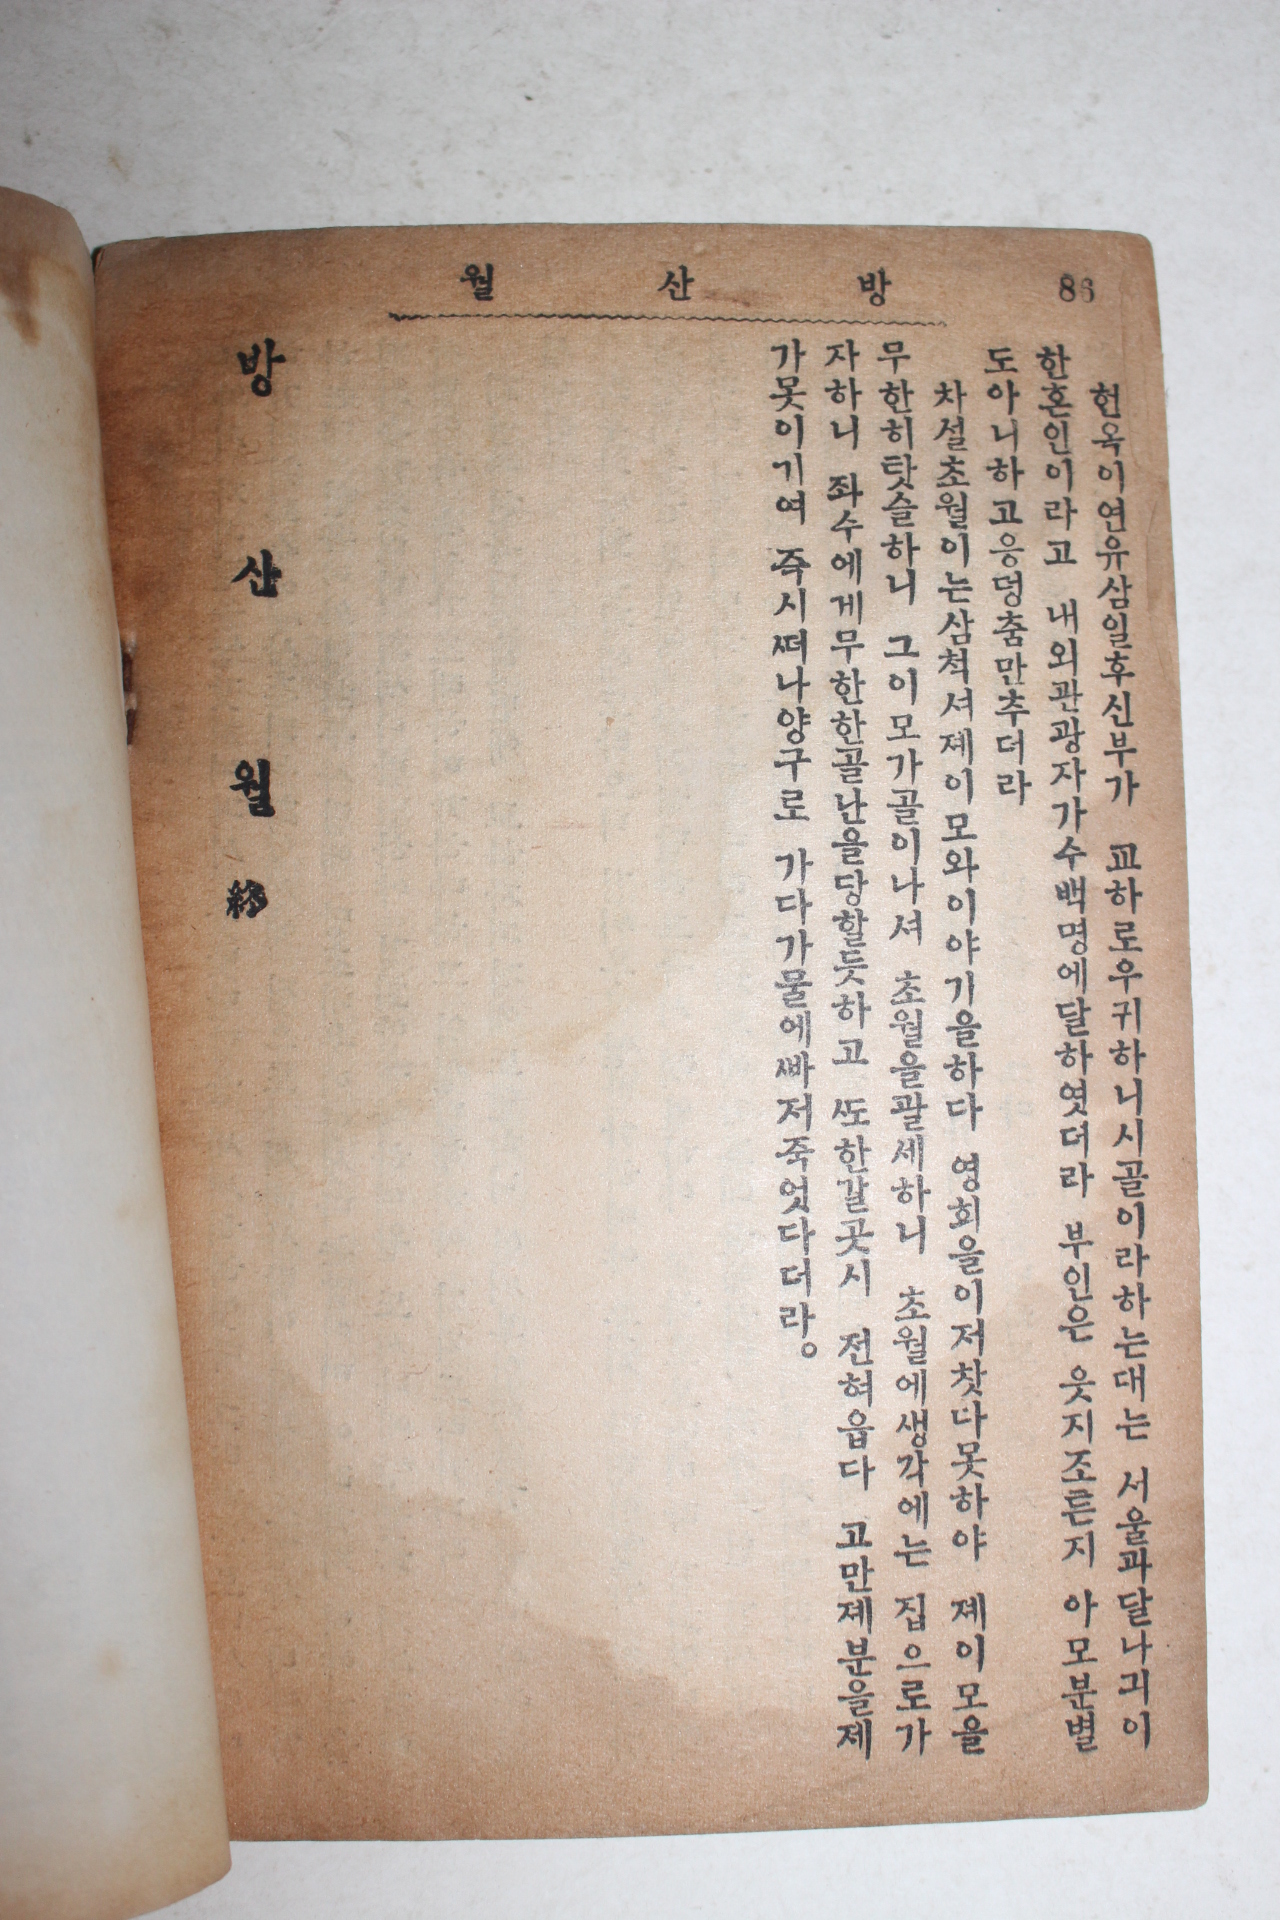 86
방산월
헌옥이연유삼일후신부가 교하로우귀하니시골이라하는대는 서울과달나긔이
한혼인이라고 내외관광자가수백명에달하엿더라 부인은 웃지조튼지 아모분별
도아니하고응덩춤만추더라
차셜초월이는삼척셔졔이모와이야기을하다 영회을이저찻다못하야 졔이모을
무한히탓슬하니 그이모가골이나셔 초월을괄세하니 초월에생각에는 집으로가
자하니 좌수에게무한한골난을당할듯하고 ᄯᅩ한갈곳시 전혀읍다 고만졔분을졔
가못이기여 즉시ᄯᅥ나양구로 가다가물에ᄲᅡ저죽엇다더라。
방산월 終